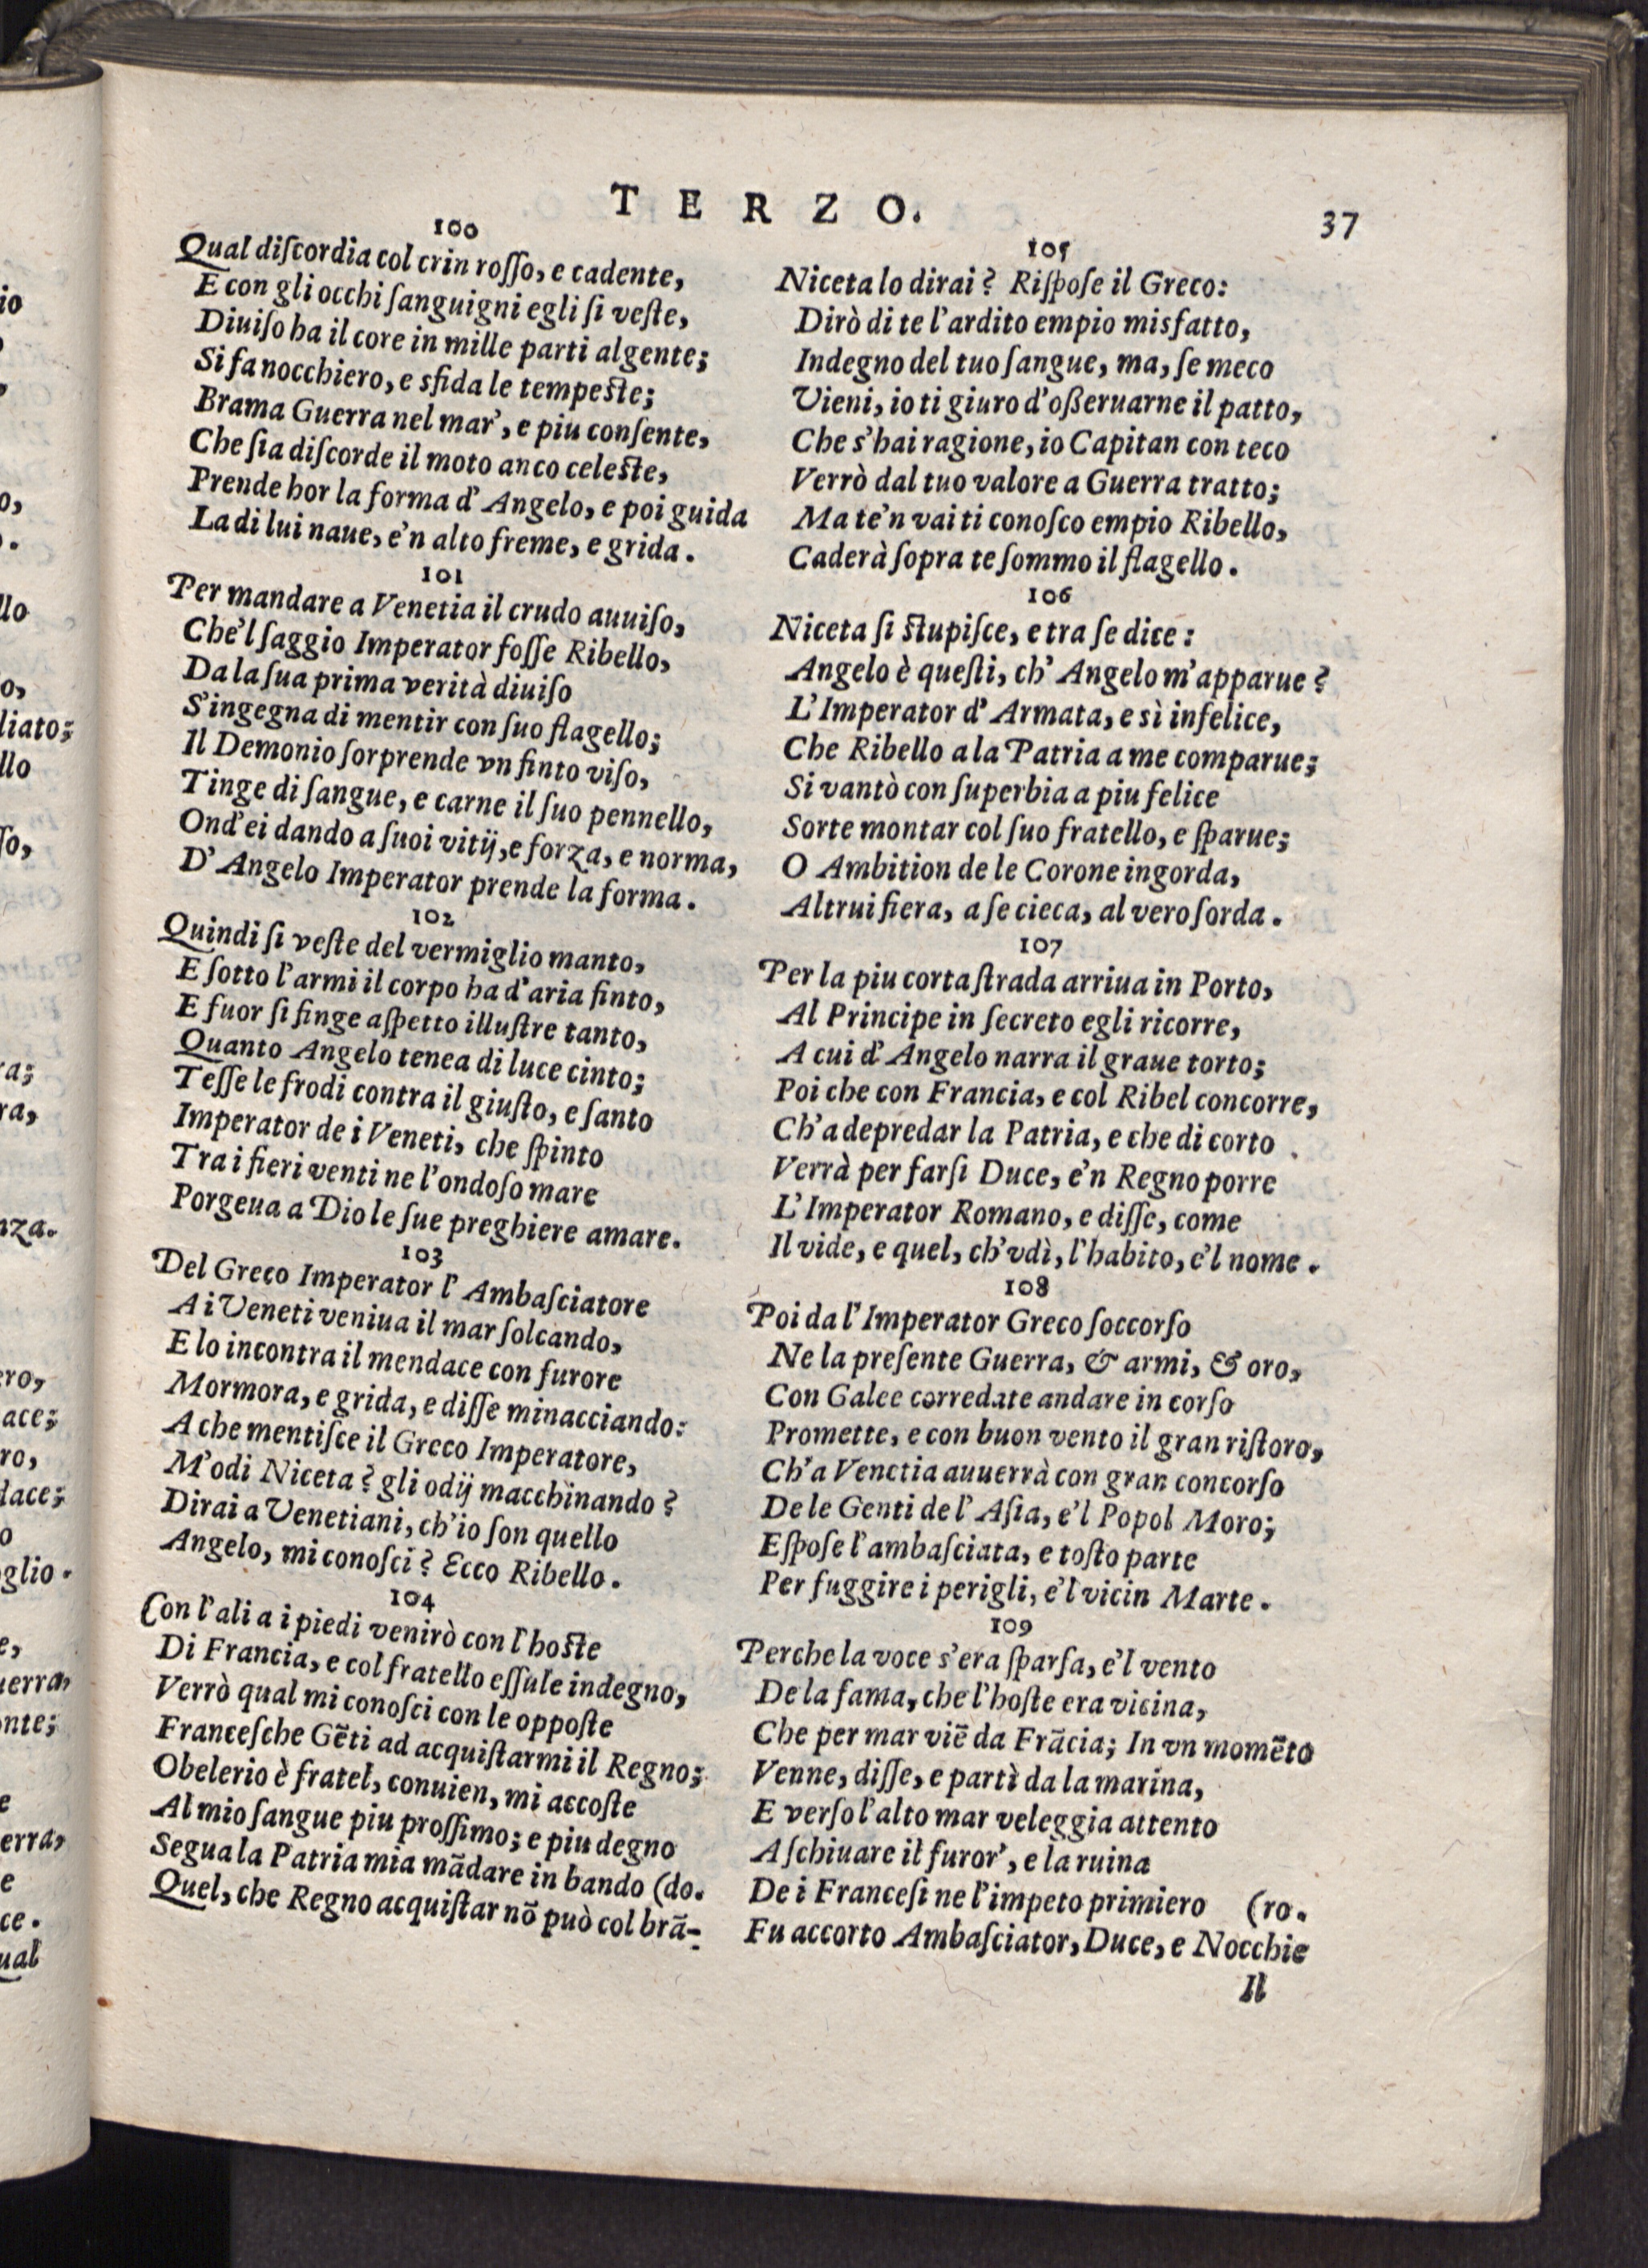 TERZO.
37
100
Qual discordia col crin rosso, e cadente,
E con gli occhi sanguigni egli si veste,
Diuiso ha il core in mille parti algente;
Si fa nocchiero, e sfida le tempeste;
Brama Guerra nel mar', e piu consente,
Che sia discorde il moto anco celeste,
Prende hor la forma d'Angelo, e poi guida
La di lui naue, e'n alto freme, e grida.
101
Per mandare a Venetia il crudo auuiso,
Che'l saggio Imperator fosse Ribello,
Da la sua prima verità diuiso
S'ingegna di mentir con suo flagello;
Il Demonio sorprende vn finto viso,
Tinge di sangue, e carne il suo pennello,
Ond'ei dando a suoi vitij, e forza, e norma,
D'Angelo Imperator prende la forma.
102
Quindi si veste del vermiglio manto,
E sotto l'armi il corpo ha d'aria finto,
E fuor si finge aspetto illustre tanto,
Quanto Angelo tenea di luce cinto;
Tesse le frodi contra il giusto, e santo
Imperator de i Veneti, che spinto
Tra i fieri venti ne l'ondoso mare
Porgeua a Dio le sue preghiere amare.
103
Del Greco Imperator l'Ambasciatore
A i Veneti veniua il mar solcando,
E lo incontra il mendace con furore
Mormora, e grida, e disse minacciando:
A che mentisce il Greco Imperatore,
M'odi Niceta? gli odij macchinando?
Dirai a Venetiani, ch'io son quello
Angelo, mi conosci? Ecco Ribello.
104
Con l'ali a i piedi venirò con l'hoste
Di Francia, e col fratello essule indegno,
Verrò qual mi conosci con le opposte
Francesche Gẽti ad acquistarmi il Regno;
Obelerio è fratel, conuien, mi accoste
Al mio sangue piu prossimo; e piu degno
Segua la Patria mia mãdare in bando (do.
Quel, che Regno acquistar nõ può col brã-
105
Niceta lo dirai? Rispose il Greco:
Dirò di te l'ardito empio misfatto,
Indegno del tuo sangue, ma, se meco
Vieni, io ti giuro d'oßeruarne il patto,
Che s'hai ragione, io Capitan con teco
Verrò dal tuo valore a Guerra tratto;
Ma te'n vai ti conosco empio Ribello,
Caderà sopra te sommo il flagello.
106
Niceta si stupisce, e tra se dice:
Angelo è questi, ch'Angelo m'apparue?
L'Imperator d'Armata, e sì infelice,
Che Ribello a la Patria a me comparue;
Si vantò con superbia a piu felice
Sorte montar col suo fratello, e sparue;
O Ambition de le Corone ingorda,
Altrui fiera, a se cieca, al vero sorda.
107
Per la piu corta strada arriua in Porto,
Al Principe in secreto egli ricorre,
A cui d'Angelo narra il graue torto;
Poi che con Francia, e col Ribel concorre,
Ch'a depredar la Patria, e che di corto
Verrà per farsi Duce, e'n Regno porre
L'Imperator Romano, e disse, come
Il vide, e quel, ch'vdì, l'habito, e'l nome.
108
Poi da l'Imperator Greco soccorso
Ne la presente Guerra, & armi, & oro,
Con Galee corredate andare in corso
Promette, e con buon vento il gran ristoro,
Ch'a Venetia auuerrà con gran concorso
De le Genti de l'Asia, e'l Popol Moro;
Espose l'ambasciata, e tosto parte
Per fuggire i perigli, e'l vicin Marte.
109
Perche la voce s'era sparsa, e'l vento
De la fama, che l'hoste era vicina,
Che per mar viẽ da Frãcia; In vn momẽto
Venne, disse, e partì da la marina,
E verso l'alto mar veleggia attento
A schiuare il furor', e la ruina
De i Francesi ne l'impeto primiero (ro.
Fu accorto Ambasciator, Duce, e Nocchie
Il